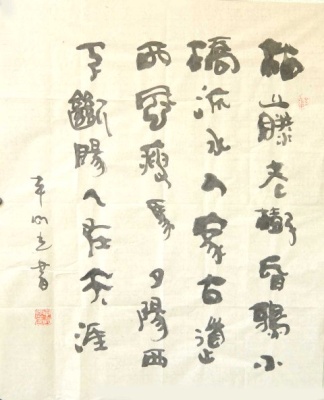 枯藤老樹昏鴉小
橋流水人家古道
西風瘦馬夕陽西
下斷腸人在天涯
書